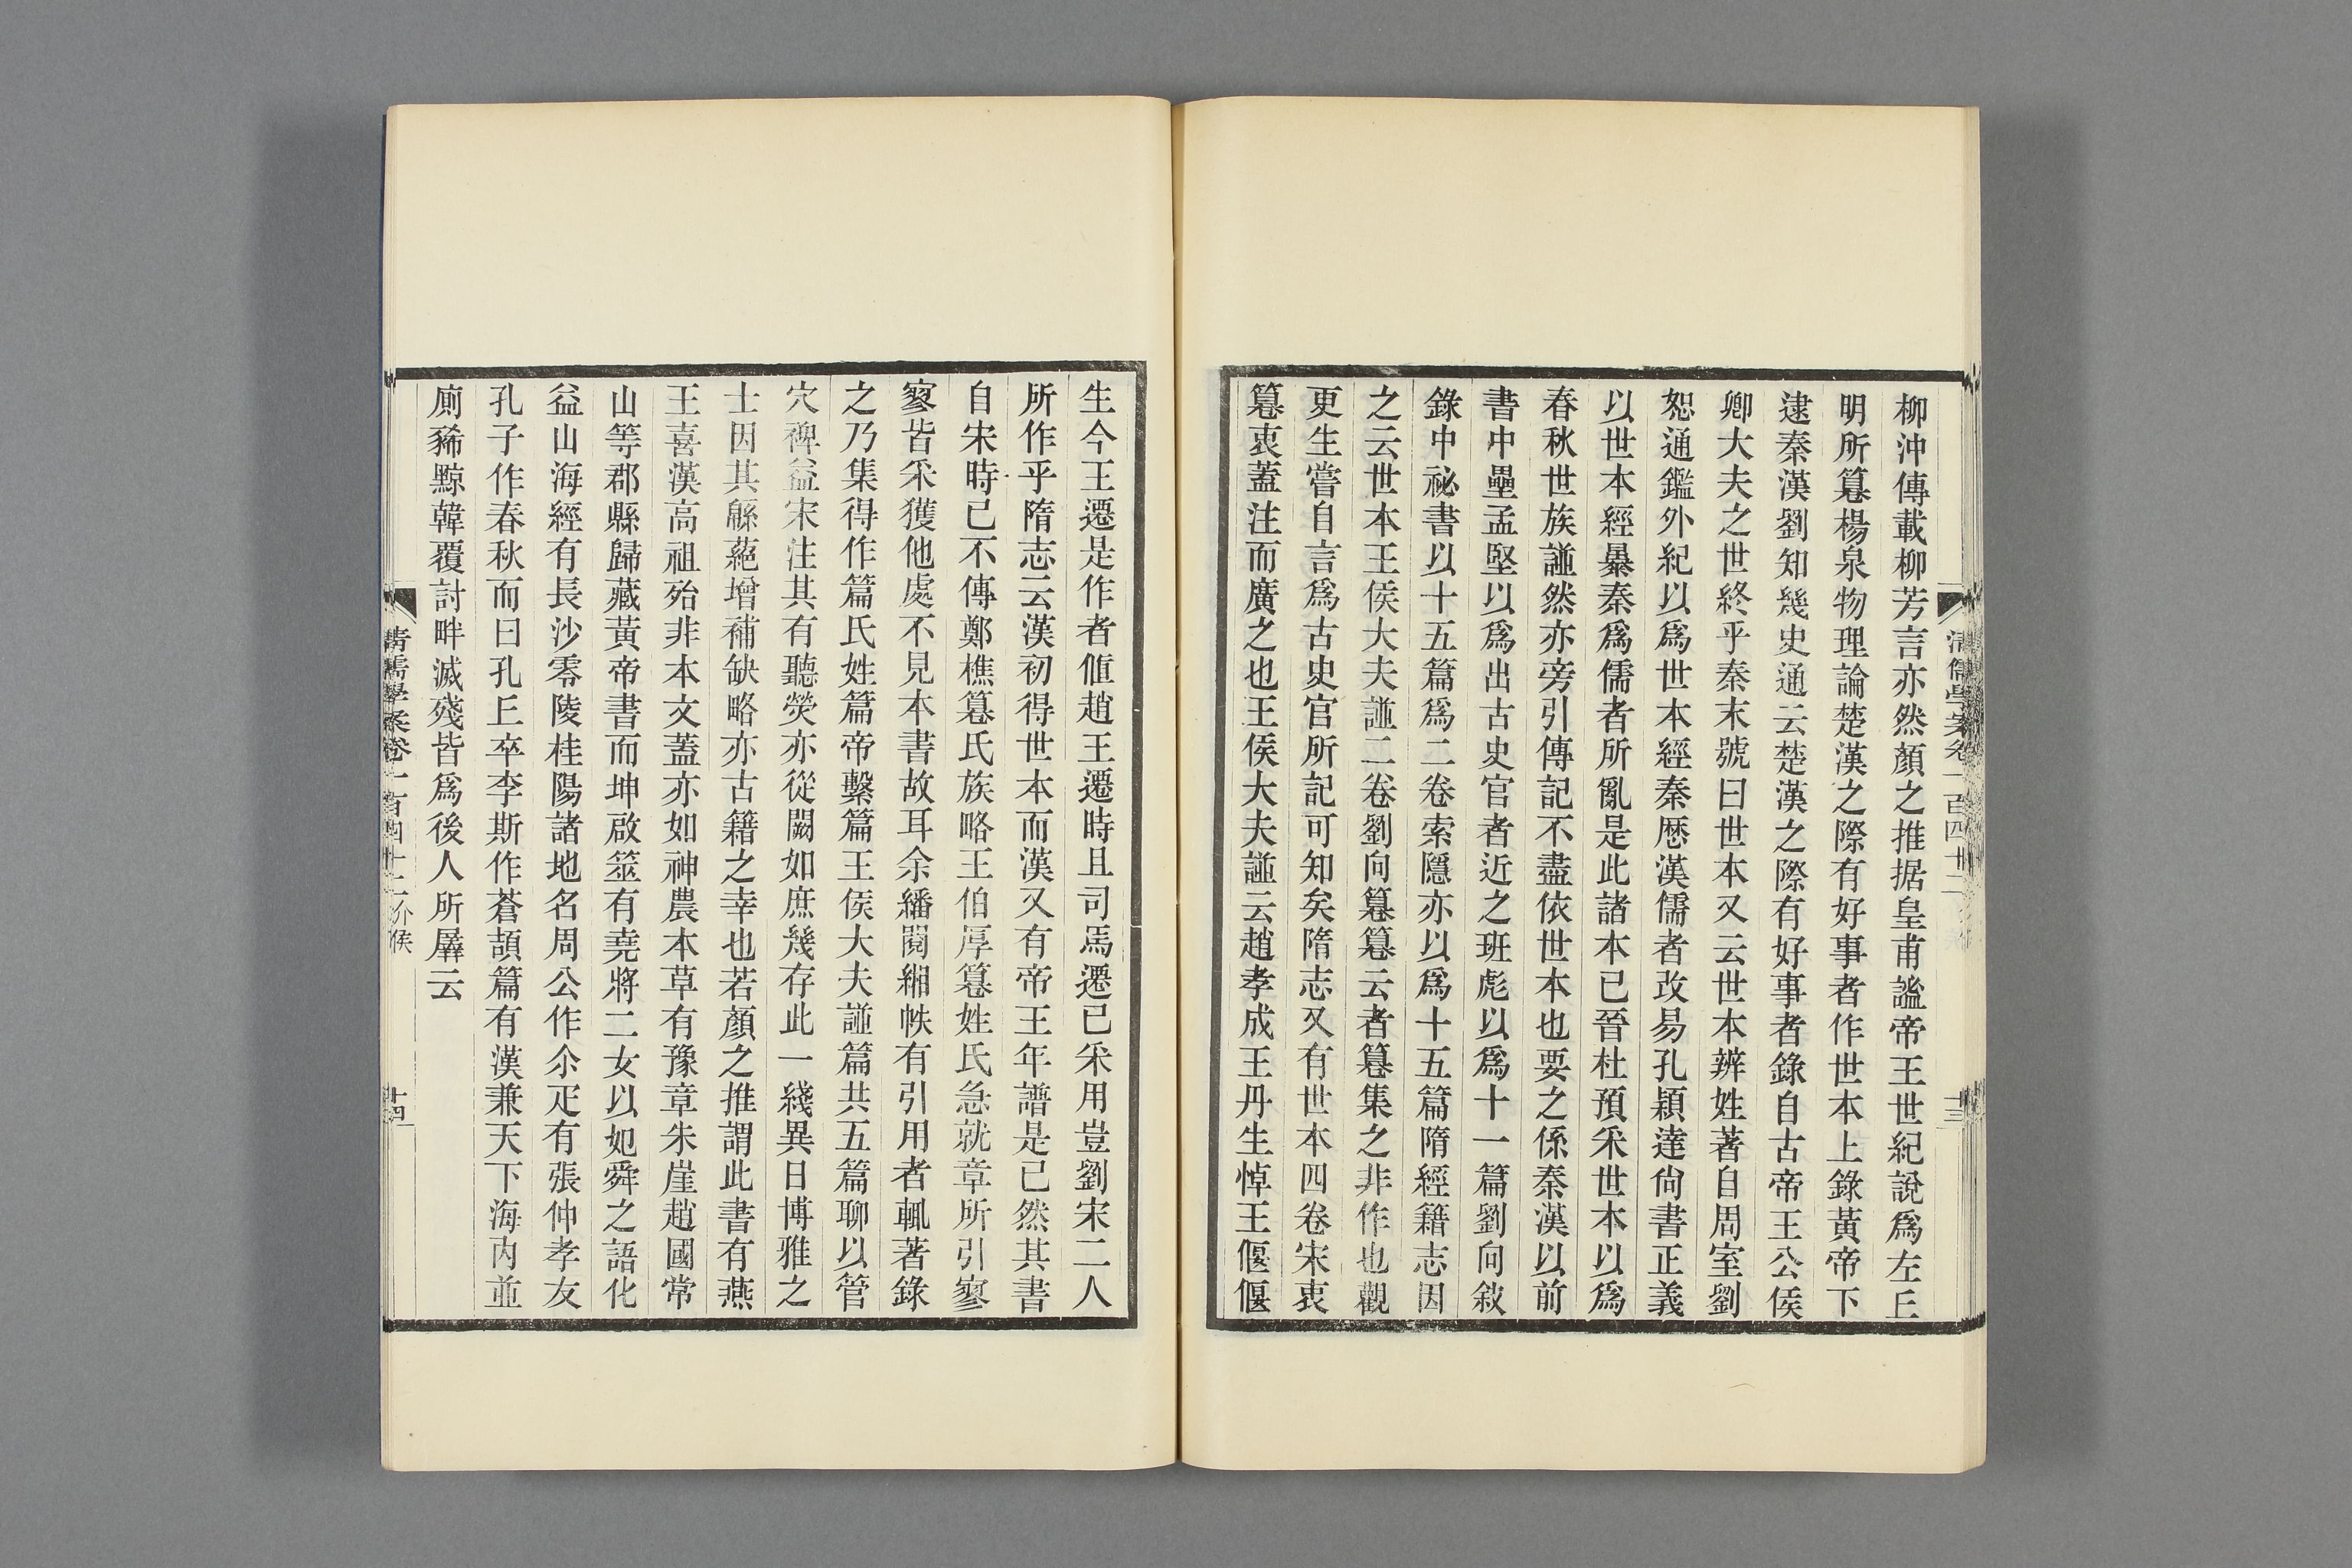 柳沖傳載柳芳言亦然顏之推据皇甫謐帝王世紀說爲左𠀉
明所篹楊泉物理論楚漢之際有好事者作世本上錄黃帝下
逮秦漢劉知幾史通云楚漢之際有好事者錄自古帝王公侯
卿大夫之世終乎秦末號曰世本又云世本辨姓著自周室劉
恕通鑑外紀以爲世本經秦歷漢儒者改易孔穎達尙書正義
以世本經㬥秦爲儒者所亂是此諸本已晉杜預采世本以爲
春秋世族譜然亦旁引傳記不盡依世本也要之係秦漢以前
書中壘孟堅以爲出古史官者近之班彪以爲十一篇劉向敘
錄中祕書以十五篇爲二卷索隱亦以爲十五篇隋經籍志因
之云世本王侯大夫譜二卷劉向篹篹云者篹集之非作也觀
更生嘗自言爲古史官所記可知矣隋志又有世本四卷宋衷
篹衷蓋注而廣之也王侯大夫譜云趙孝成王丹生悼王偃偃
清儒學案卷一百四十二
十三
生今王遷是作者值趙王遷時且司馬遷已采用豈劉宋二人
所作乎隋志云漢初得世本而漢又有帝王年譜是已然其書
自宋時已不傳鄭樵篹氏族略王伯厚篹姓氏急就章所引寥
寥皆采獲他處不見本書故耳余繙閱緗帙有引用者輒著錄
之乃集得作篇氏姓篇帝繫篇王侯大夫譜篇共五篇聊以管
穴裨益宋注其有聽熒亦從闕如庶幾存此一綫異日博雅之
士因其緜蕝增補缺略亦古籍之幸也若顏之推謂此書有燕
王喜漢高祖殆非本文蓋亦如神農本草有豫章朱崖趙國常
山等郡縣歸藏黃帝書而坤啟筮有堯將二女以妃舜之語化
益山海經有長沙零陵桂陽諸地名周公作尒疋有張仲孝友
孔子作春秋而曰孔𠀉卒李斯作蒼頡篇有漢兼天下海內並
廁豨黥韓覆討畔滅殘皆爲後人所羼云
清儒學案卷一百四十二 介侯
十四